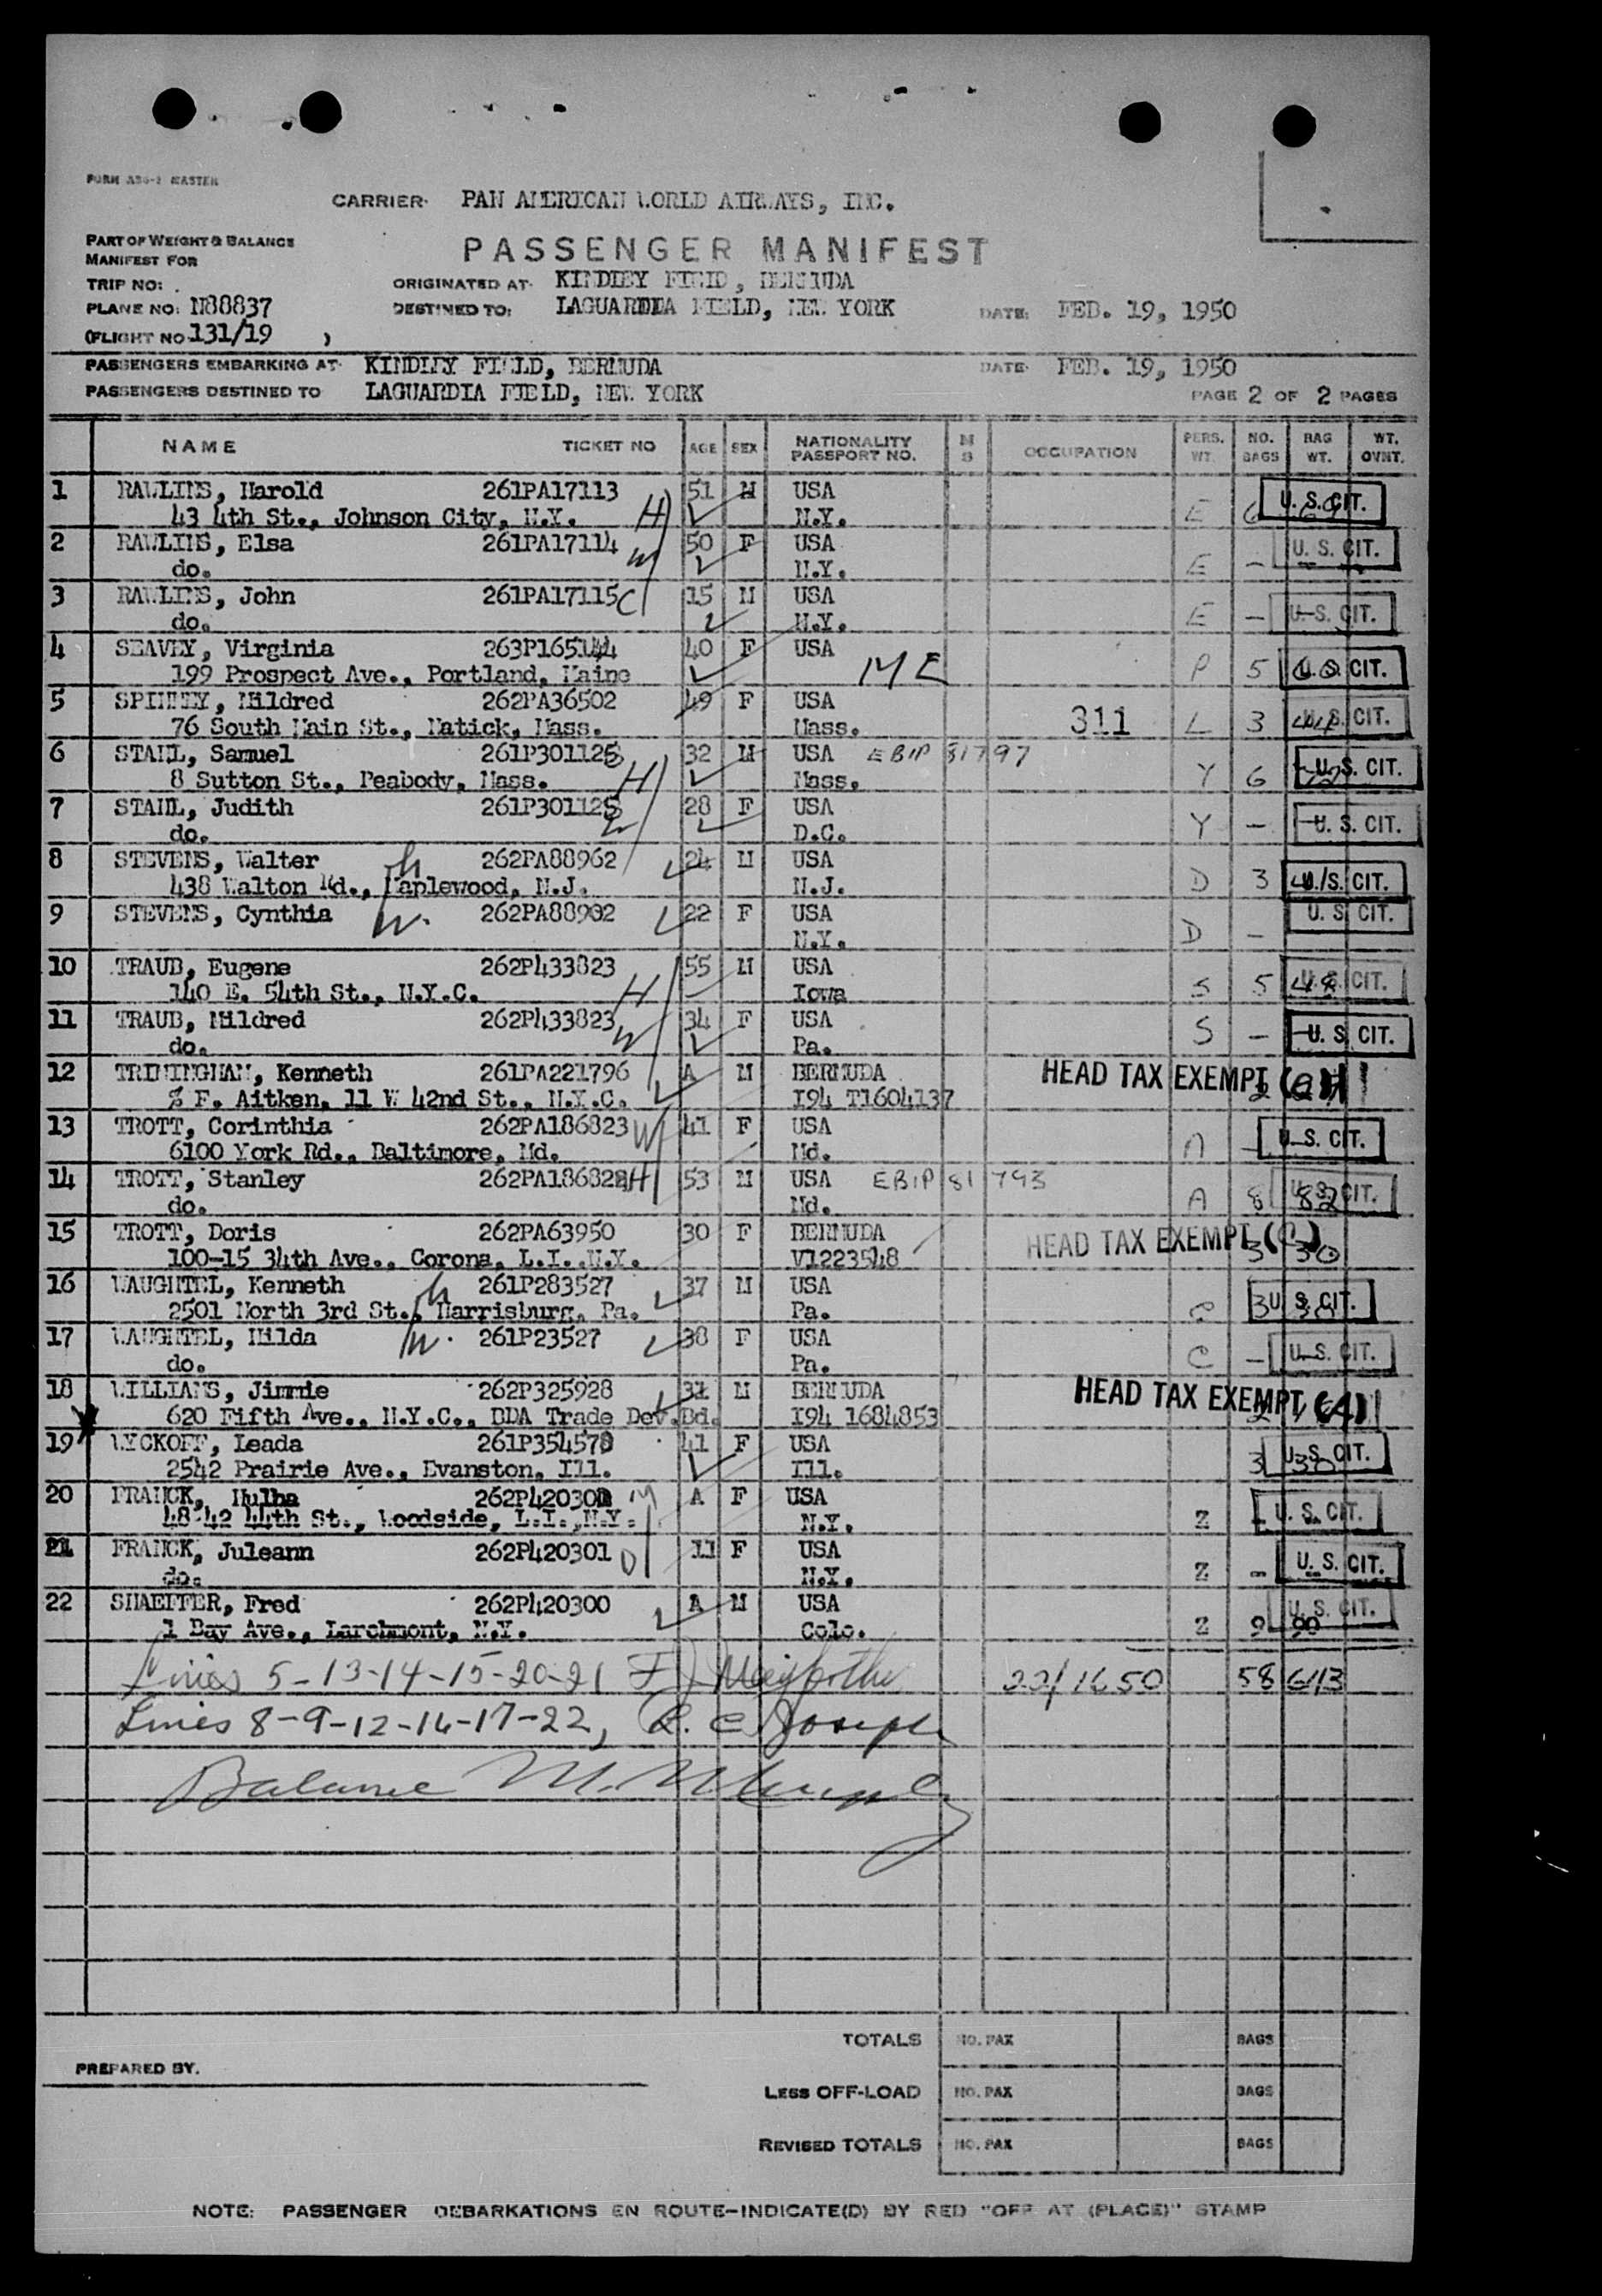 FORM ASG-1 MASTER
CARRIER PAN AMERICAN WORLD AIRWAYS, INC.
PART OF WEIGHT & BALANCE
MANIFEST FOR
PASSENGER MANIFEST
TRIP NO: ORIGINATED AT KINDLEY FIELD, BERMUDA
PLANE NO: N88837 DESTINED TO: LAGUARDIA FIELD, NEW YORK DATE: FEB. 19, 1950
(FLIGHT NO 131/19 )
PASSENGERS EMBARKING AT KINDLEY FIELD, BERMUDA DATE FEB. 19, 1950
PASSENGERS DESTINED TO LAGUARDIA FIELD, NEW YORK PAGE 2 OF 2 PAGES
NAME TICKET NO AGE SEX NATIONALITY PASSPORT NO. M S OCCUPATION PERS. WT. NO. BAGS BAG WT. WT. OVNT.
1 RAWLINS, Harold 261PA17113 51 M USA
43 4th St., Johnson City, N.Y. H N.Y. E 6 U. S. CIT.
2 RAWLINS, Elsa 261PA17114 W 50 F USA U. S. CIT.
do. N.Y. E -
3 RAWLINS, John 261PA17115 C 15 M USA
do. N.Y. E - U. S. CIT.
4 SEAVEY, Virginia 263P165144 40 F USA
199 Prospect Ave., Portland, Maine ME P 5 CIT.
5 SPINNEY, Mildred 262PA36502 49 F USA
76 South Main St., Natick, Mass. Mass. 311 L 3 U. S. CIT.
6 STAHL, Samuel 261P301128 32 M USA EBIP 81797
8 Sutton St., Peabody, Mass. H Mass. Y 6 U. S. CIT.
7 STAHL, Judith 261P301128 28 F USA
do. D.C. Y - U. S. CIT.
8 STEVENS, Walter h 262PA88962 24 M USA
438 Walton Rd., Maplewood, N.J. N.J. D 3 U. S. CIT.
9 STEVENS, Cynthia W. 262PA88902 22 F USA U. S. CIT.
N.Y. D -
10 TRAUB, Eugene 262P433823 55 M USA
140 E. 54th St., N.Y.C. H Iowa S 5 48 U. S. CIT.
11 TRAUB, Mildred 262P433823 W 34 F USA
do. Pa. S - U. S. CIT.
12 TRIMINGHAM, Kenneth 261PA221796 A M BERMUDA HEAD TAX EXEMPT
% F. Aitken, 11 W 42nd St., N.Y.C. I94 T1604137
13 TROTT, Corinthia 262PA186823 W 41 F USA
6100 York Rd., Baltimore, Md. Md. A - U. S. CIT.
14 TROTT, Stanley 262PA186822 H 53 M USA EBIP 81793
do. Md. A 8 82 U. S. CIT.
15 TROTT, Doris 262PA63950 30 F BERMUDA HEAD TAX EXEMPT
100-15 34th Ave., Corona, L.I. N.Y. V1223548 3 30
16 WAUGHTEL, Kenneth h 261P283527 37 M USA
2501 North 3rd St., Harrisburg, Pa. Pa. C 3 U. S. CIT.
17 WAUGHTEL, Hilda W. 261P23527 38 F USA
do. Pa. C - U. S. CIT.
18 WILLIAMS, Jimmie 262P325928 31 M BERMUDA HEAD TAX EXEMPT
620 Fifth Ave., N.Y.C., BDA Trade Dev. Bd. I94 1684853
19 WYCKOFF, Leada 261P354578 41 F USA
2542 Prairie Ave., Evanston, Ill. Ill. 3 30 U. S. CIT.
20 FRANCK, Hulba 262P420302 M A F USA
48-42 44th St., Woodside, L.I., N.Y. N.Y. Z - U. S. CIT.
21 FRANCK, Juleann 262P420301 D 11 F USA
do. N.Y. Z - U. S. CIT.
22 SHAEFFER, Fred 262P420300 A M USA
1 Bay Ave., Larchmont, N.Y. Colo. Z 9 90 U. S. CIT.
Lines 5-13-14-15-20-21 22/1650 58 613
Lines 8-9-12-16-17-22, R. C. Joseph
Balance
TOTALS NO. PAX BAGS
PREPARED BY.
LESS OFF-LOAD NO. PAX BAGS
REVISED TOTALS NO. PAX BAGS
NOTE: PASSENGER DEBARKATIONS EN ROUTE-INDICATE(D) BY RED "OFF AT (PLACE)" STAMP